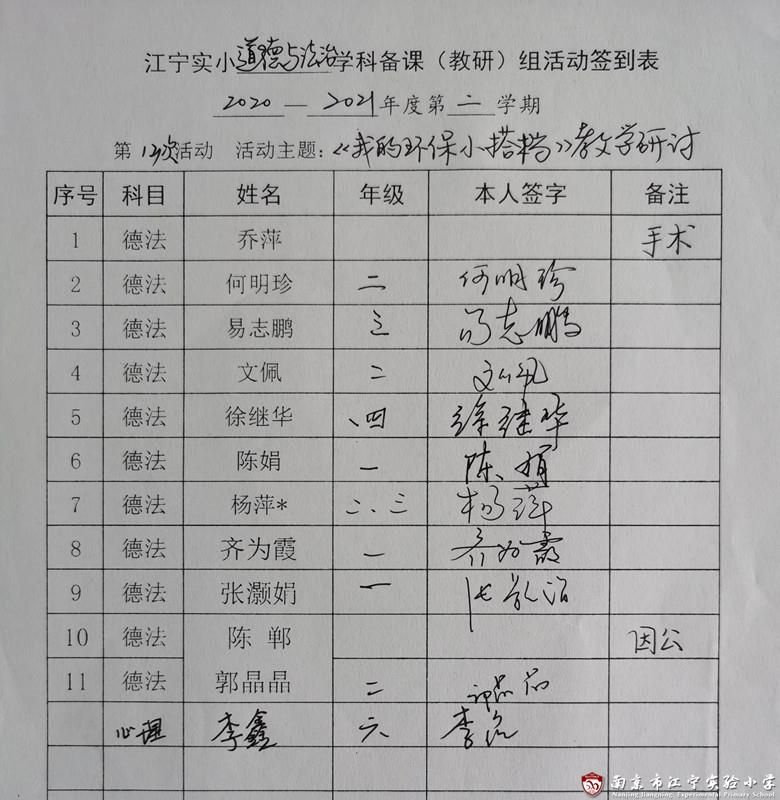 江宁实小道德与法治学科备课（教研）组活动签到表
2020—2021年度第二学期
第12次活动 活动主题：《我的环保小搭档》教学研讨
序号 科目 姓名 年级 本人签字 备注
1 德法 乔萍 手术
2 德法 何明珍 二 何明珍
3 德法 易志鹏 三 易志鹏
4 德法 文佩 二 文佩
5 德法 徐继华 、四 徐继华
6 德法 陈娟 一 陈娟
7 德法 杨萍* 二、三 杨萍
8 德法 齐为霞 一 齐为霞
9 德法 张灏娟 一 张
10 德法 陈郸 因公
11 德法 郭晶晶 二 郭晶晶
心理 李鑫 六 李鑫
南京市江宁实验小学
Nanjing Jiangning Experimental Primary School